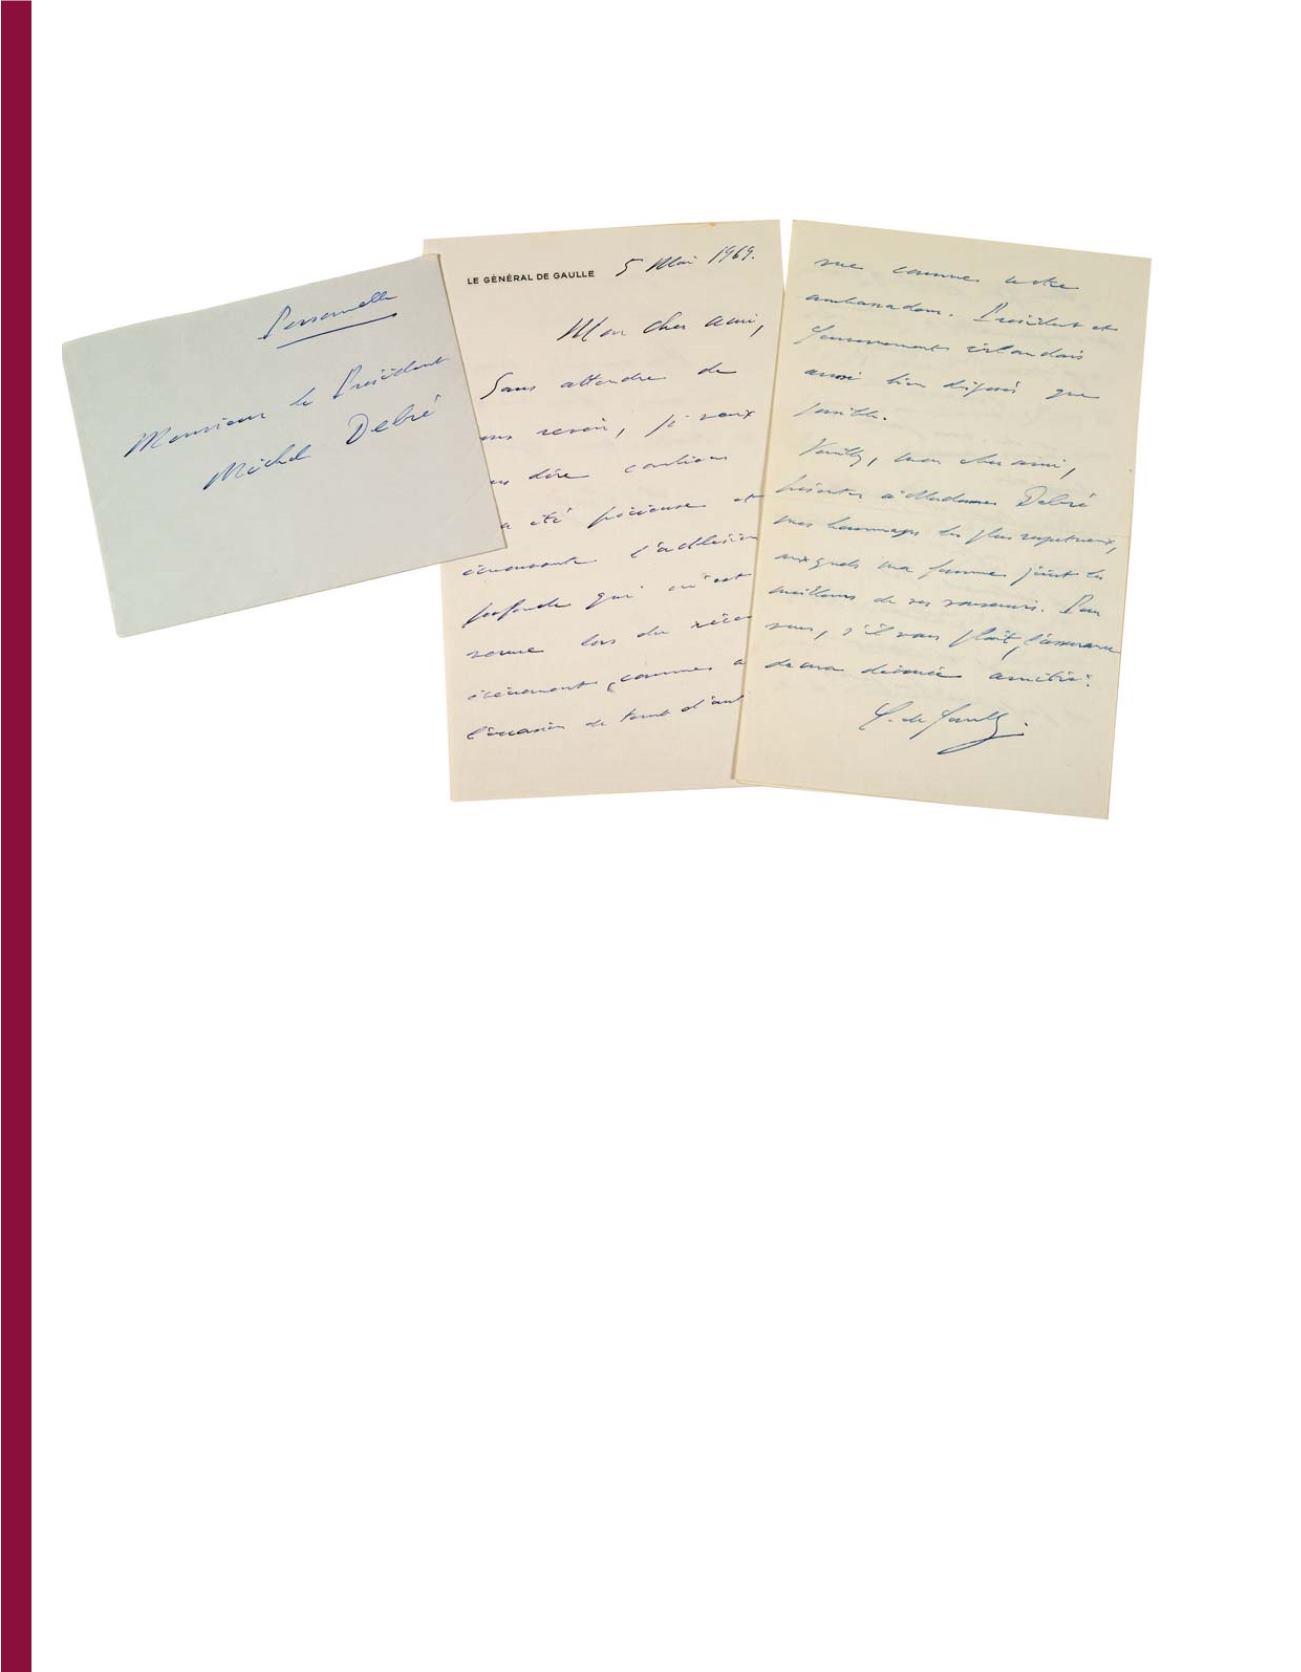 Personnelle
Monsieur le Président
Michel Debré
LE GÉNÉRAL DE GAULLE
5 Mai 1969.
Mon cher ami,
Sans attendre de
revoir, je veux
dire combien
a été précieuse et
émouvante l'adhésion
profonde qui m'est
venue lors du
événement, comme à
l'occasion de tant d'aut
que comme notre
ambassadeur. Président et
Gouvernement irlandais
aussi bien disposés que
possible.
Veuillez, mon cher ami,
présenter à Madame Debré
mes hommages les plus respectueux,
auxquels ma femme joint les
meilleurs de ses souvenirs. Pour
vous, s'il vous plaît, l'assurance
de ma dévouée amitié.
C. de Gaulle.